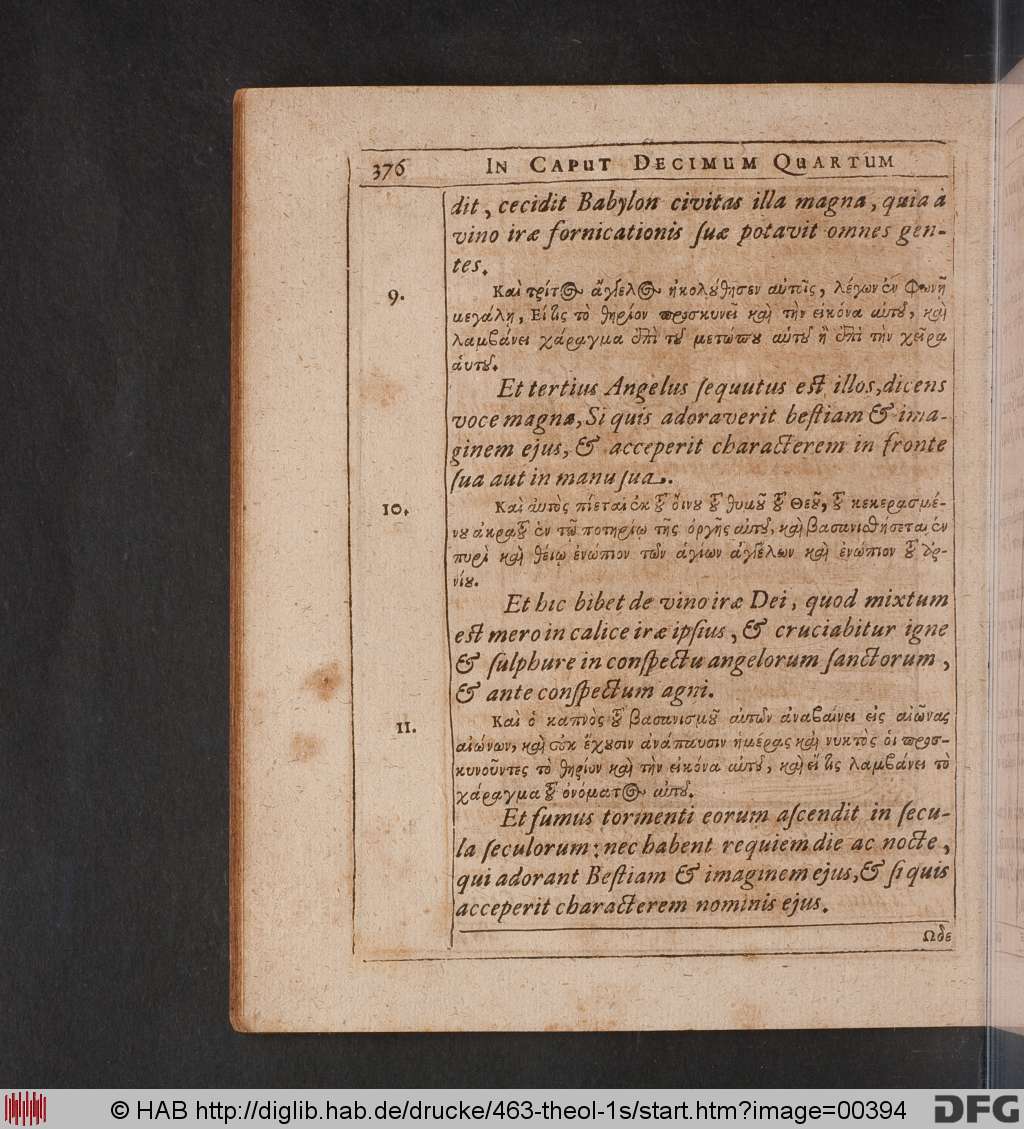 376 IN CAPUT DECIMUM QUARTUM
dit, cecidit Babylon civitas illa magna, quia à
vino iræ fornicationis ſuæ potavit omnes gen-
tes.
9. Καὶ τρίτος ἄγγελος ἠκολούθησεν αὐτοῖς, λέγων ἐν Φωνῇ
μεγάλῃ, Εἴ τις τὸ θηρίον προσκυνεῖ καὶ τὴν εἰκόνα αὐτοῦ, καὶ
λαμβάνει χάραγμα ἐπὶ τοῦ μετώπου αὐτοῦ ἢ ἐπὶ τὴν χεῖρα
αὑτοῦ.
Et tertius Angelus ſequutus est illos, dicens
voce magna, Si quis adoraverit beſtiam & ima-
ginem ejus, & acceperit characterem in fronte
ſua aut in manu ſua.
10. Καὶ αὐτὸς πίεται ἐκ τοῦ οἴνου τοῦ θυμοῦ τοῦ Θεοῦ, τοῦ κεκερασμέ-
νου ἀκράτου ἐν τῷ ποτηρίῳ τῆς ὀργῆς αὐτοῦ, καὶ βασανισθήσεται ἐν
πυρὶ καὶ θείῳ ἐνώπιον τῶν ἁγίων ἀγγέλων καὶ ἐνώπιον τοῦ ἀρ-
νίου.
Et hic bibet de vino iræ Dei, quod mixtum
est mero in calice iræ ipſius, & cruciabitur igne
& ſulphure in conſpectu angelorum ſanctorum,
& ante conſpectum agni.
11. Καὶ ὁ καπνὸς τοῦ βασανισμοῦ αὐτῶν ἀναβαίνει εἰς αἰῶνας
αἰώνων, καὶ οὐκ ἔχουσιν ἀνάπαυσιν ἡμέρας καὶ νυκτὸς οἱ προσ-
κυνοῦντες τὸ θηρίον καὶ τὴν εἰκόνα αὐτοῦ, καὶ εἴ τις λαμβάνει τὸ
χάραγμα τοῦ ὀνόματος αὐτοῦ.
Et fumus tormenti eorum aſcendit in ſecu-
la ſeculorum: nec habent requiem die ac nocte,
qui adorant Beſtiam & imaginem ejus, & ſi quis
acceperit characterem nominis ejus.
Ωδε
© HAB http://diglib.hab.de/drucke/463-theol-1s/start.htm?image=00394
DFG